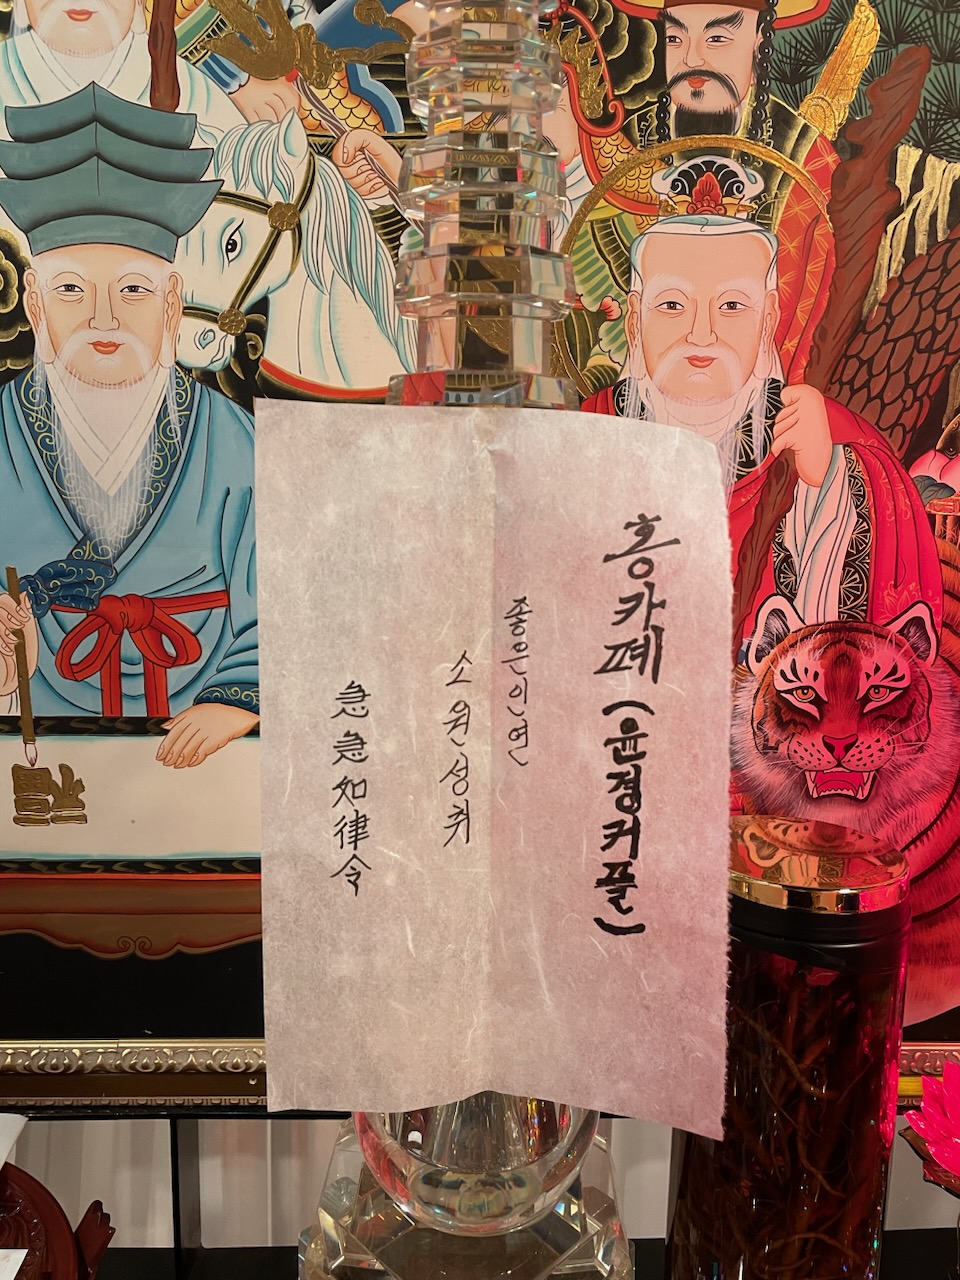 홍카페(윤경커플)
좋은인연
소원성취
急急如律令